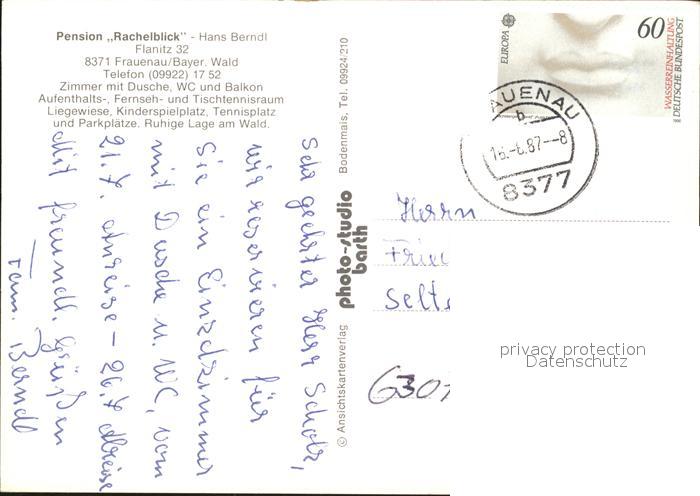 Pension „Rachelblick" - Hans Berndl
Flanitz 32
8371 Frauenau/Bayer. Wald
Telefon (09922) 17 52
Zimmer mit Dusche, WC und Balkon
Aufenthalts-, Fernseh- und Tischtennisraum
Liegewiese, Kinderspielplatz, Tennisplatz
und Parkplätze. Ruhige Lage am Wald.
Sehr geehrter Herr Scholz,
wir reservieren für
Sie ein Einzelzimmer
mit Dusche u. WC, vom
21.7. Anreise – 26.7. Abreise
Mit freundl. Grüßen
Fam. Berndl
© Ansichtskartenverlag photo-studio barth Bodenmais, Tel. 09924/210
EUROPA
60
WASSERREINHALTUNG
DEUTSCHE BUNDESPOST
AUENAU
b
16.-6.87--8
8377
Herrn
Selts
6301
privacy protection
Datenschutz